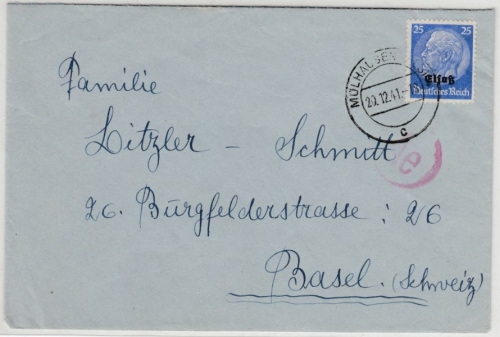 25 25
Elsaß
Deutsches Reich
MÜLHAUSEN
20.12.41.-
c
e
Familie
Litzler - Schmitt
26. Burgfelderstrasse : 26
Basel. (Schweiz)